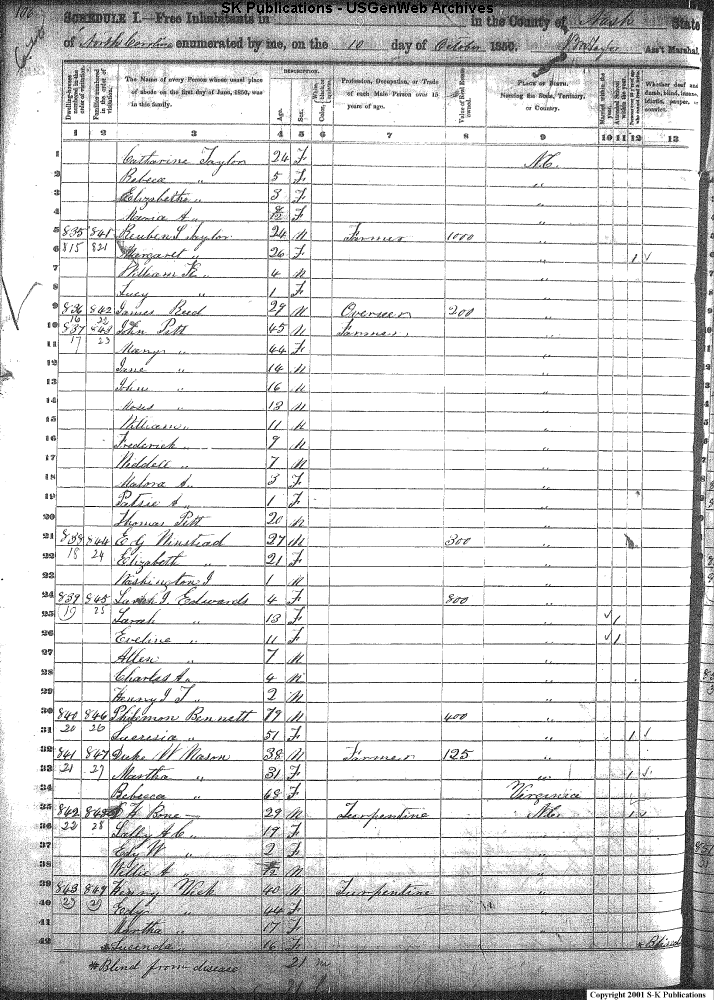 SK Publications - USGenWeb Archives
SCHEDULE I.—Free Inhabitants in in the County of Nash State
of North Carolina enumerated by me, on the 10 day of October 1850. Ass't Marshal
Dwelling-houses numbered in the order of visitation.
Families numbered in the order of visitation.
The Name of every Person whose usual place of abode on the first day of June, 1850, was in this family.
DESCRIPTION.
Age.
Sex.
Profession, Occupation, or Trade of each Male Person over 15 years of age.
Value of Real Estate owned.
PLACE OF BIRTH. Naming the State, Territory, or Country.
Married within the year.
Whether deaf and dumb, blind, insane, idiotic, pauper, or convict.
1 2 3 4 5 6 7 8 9 10 11 12 13
1 Catharine Taylor 24 F N.C.
2 Rebeca " 5 F "
3 Elizabeth " 3 F "
4 Maria A " F "
5 835 841 Reuben S Taylor 24 M Farmer 1000 "
6 815 821 Margaret " 26 F " 1 ✓
7 William " 4 M "
8 Lucy " 1 F "
9 836 842 James Reed 29 M Overseer 200 "
10 16 22 837 843 John Pitt 45 M Farmer "
11 17 23 Mary " 44 F "
12 Jane " 14 M "
13 John " 16 M "
14 Moses " 13 M "
15 William " 11 M "
16 Frederick " 9 M "
17 " 7 M "
18 A " 3 F "
19 Patsie A " 1 F "
20 Thomas Pitt 20 M "
21 838 844 E G Winstead 27 M 300 "
22 18 24 Elizabeth " 21 F "
23 Washington J 1 M "
24 839 845 J. Edwards 4 F 800 "
25 19 25 Sarah " 13 F " ✓ 1
26 Eveline " 11 F " ✓ 1
27 Allen " 7 M "
28 Charles A " 4 M "
29 Henry J T " 2 M "
30 840 846 Philemon Bennett 79 M 400 "
31 20 26 Lucresia " 51 F " 1 ✓
32 841 847 Duke W Mason 38 M Farmer 125 "
33 21 27 Martha " 31 F " 1 ✓
34 Rebecca " 68 F Virginia
35 842 848 Bone 29 M Turpentine N.C. 1
36 22 28 Sally A C " 19 F "
37 Edy W " 2 F "
38 Willie A " M "
39 843 849 Henry Vick 40 M Turpentine "
40 23 29 Edy " 44 F "
41 Martha " 17 F "
42 *Lucinda " 16 F " * Blind
*Blind from disease 21 m
Copyright 2001 S-K Publications